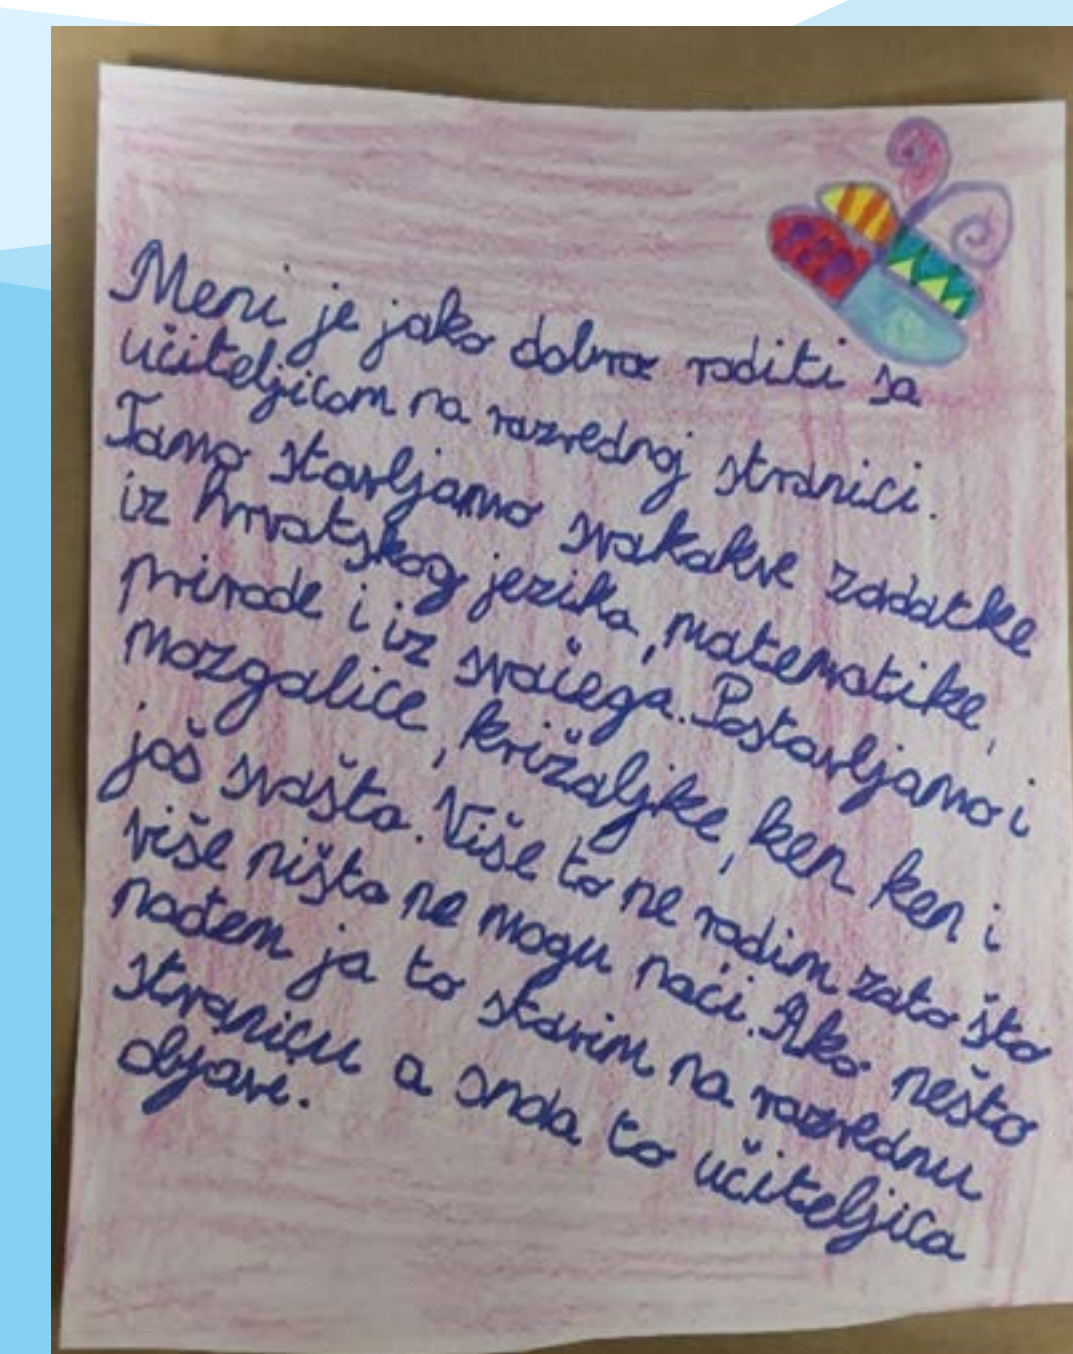 Meni je jako dobro raditi sa
učiteljicom na razrednoj stranici.
Tamo stavljamo svakakve zadatke
iz hrvatskog jezika, matematike,
prirode i iz svačega. Postavljamo i
mozgalice, križaljke, ken ken i
još svašta. Više to ne radim zato što
više ništa ne mogu naći. Ako nešto
nađem ja to stavim na razrednu
stranicu a onda to učiteljica
objavi.